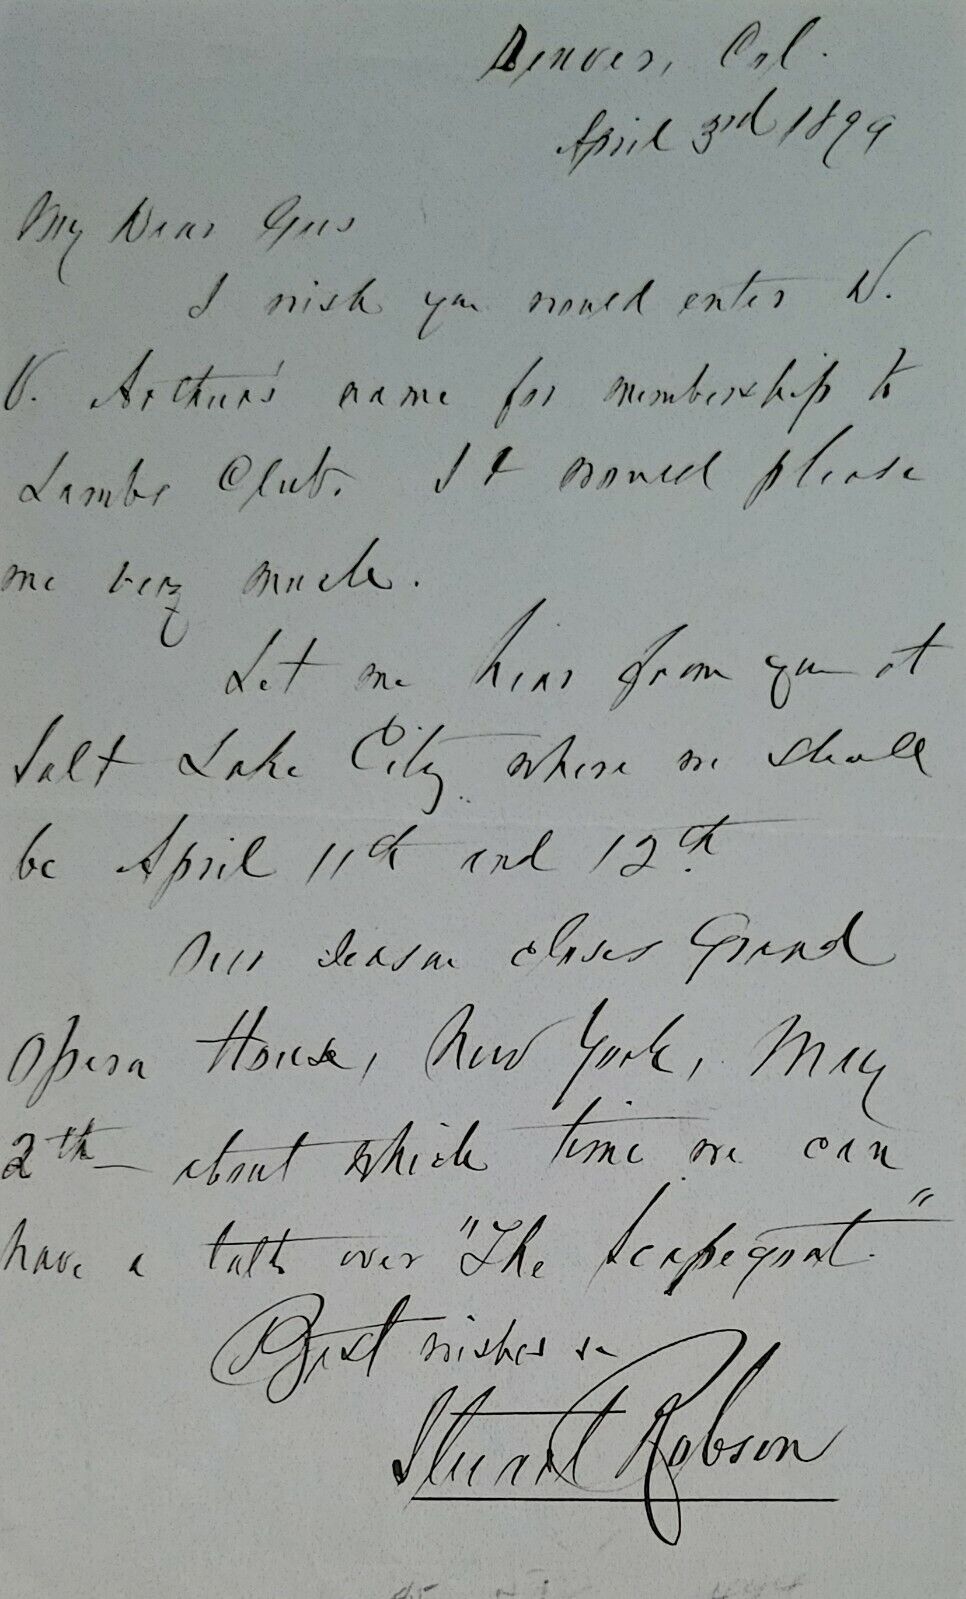 Denver, Col.
April 3rd 1899
My Dear Gus
I wish you would enter W.
V. Arthur's name for membership to
Lambs Club. It would please
me very much.
Let me hear from you at
Salt Lake City where we shall
be April 11th and 12th.
Our season closes Grand
Opera House, New York, May
2th — about which time we can
have a talk over "The Scapegoat."
Best wishes
Stuart Robson